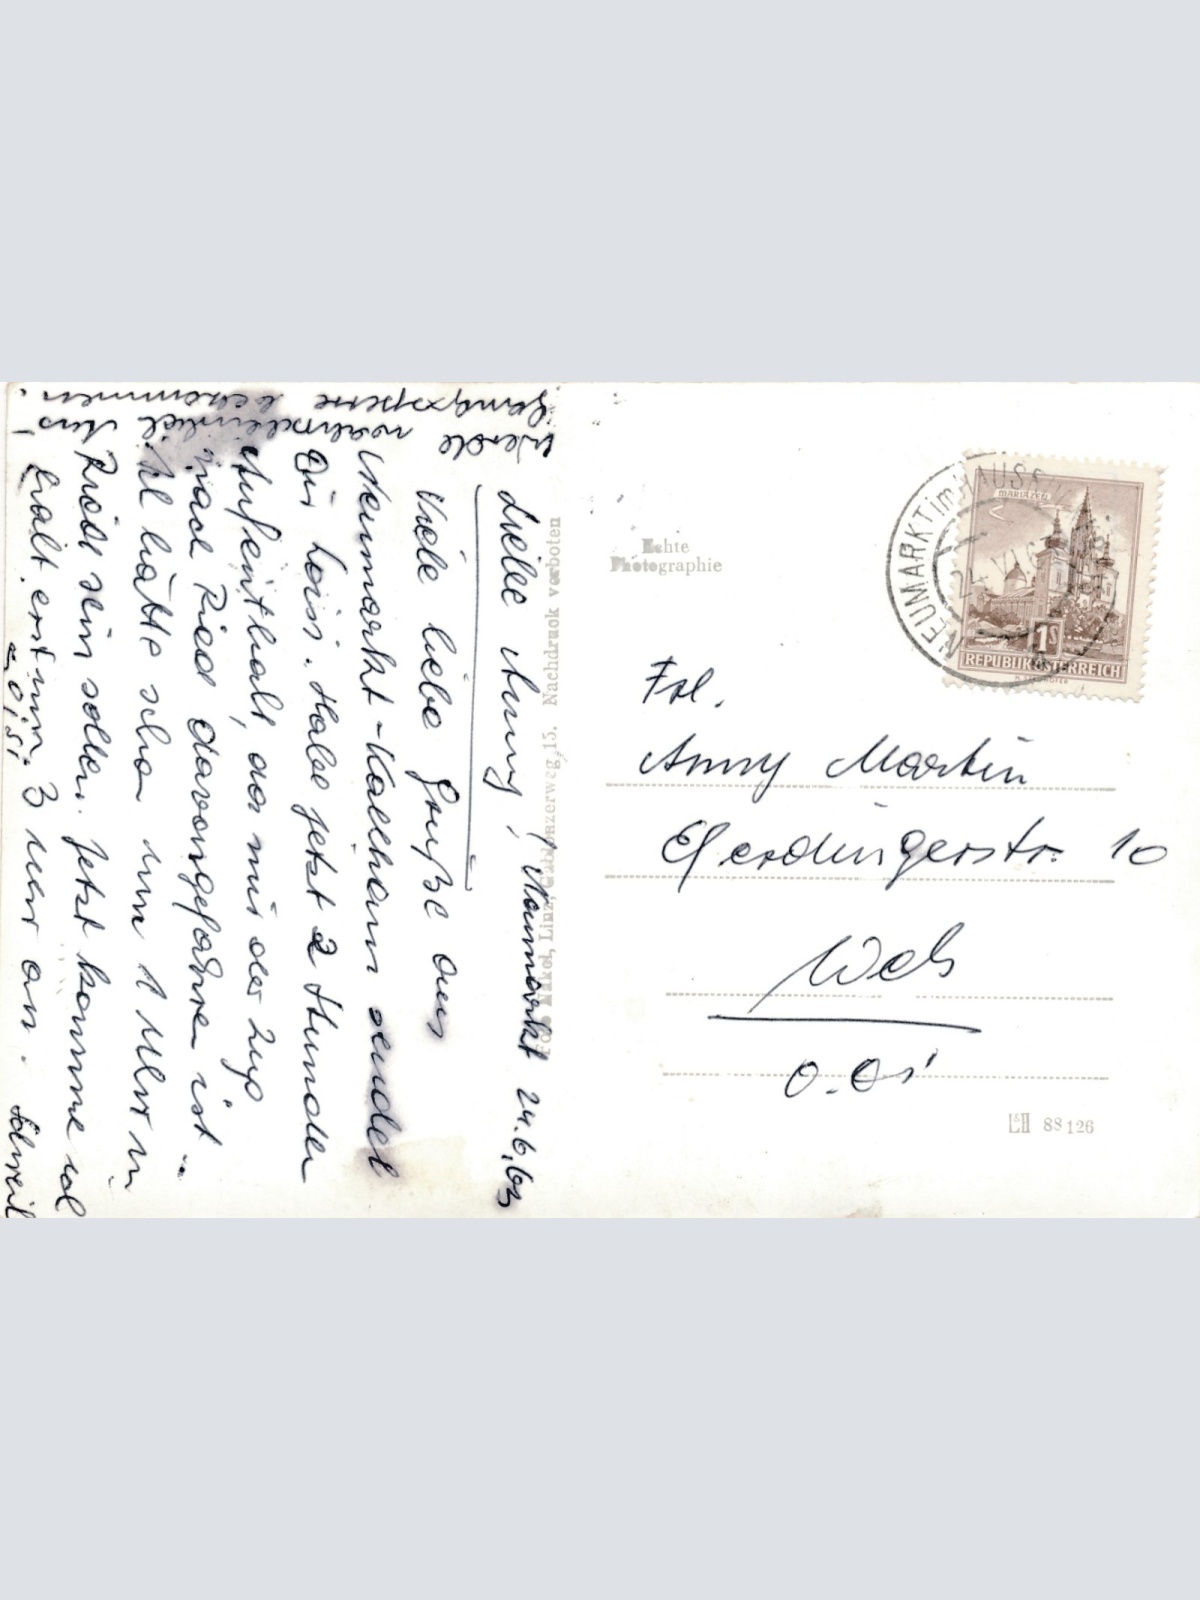 Liebe Anny! Neumarkt 24.6.63
Viele liebe Grüße aus
Neumarkt-Kallham sendet
Dir Loisi. Habe jetzt 2 Stunden
Aufenthalt, da mir der Zug
nach Ried davongefahren ist.
Ich hätte schon um 1 Uhr in
Ried sein sollen. Jetzt komme ich
halt erst um 3 Uhr an.
Loisi
Werde wahrscheinlich
bekommen.
Foto Nikol, Linz, Gablonzerweg 15. Nachdruck verboten
Echte
Photographie
NEUMARKT im HAUSR
MARIAZELL
1S
REPUBLIK ÖSTERREICH
Frl.
Anny Martin
Eferdingerstr. 10
Wels
O.Ö.
88126